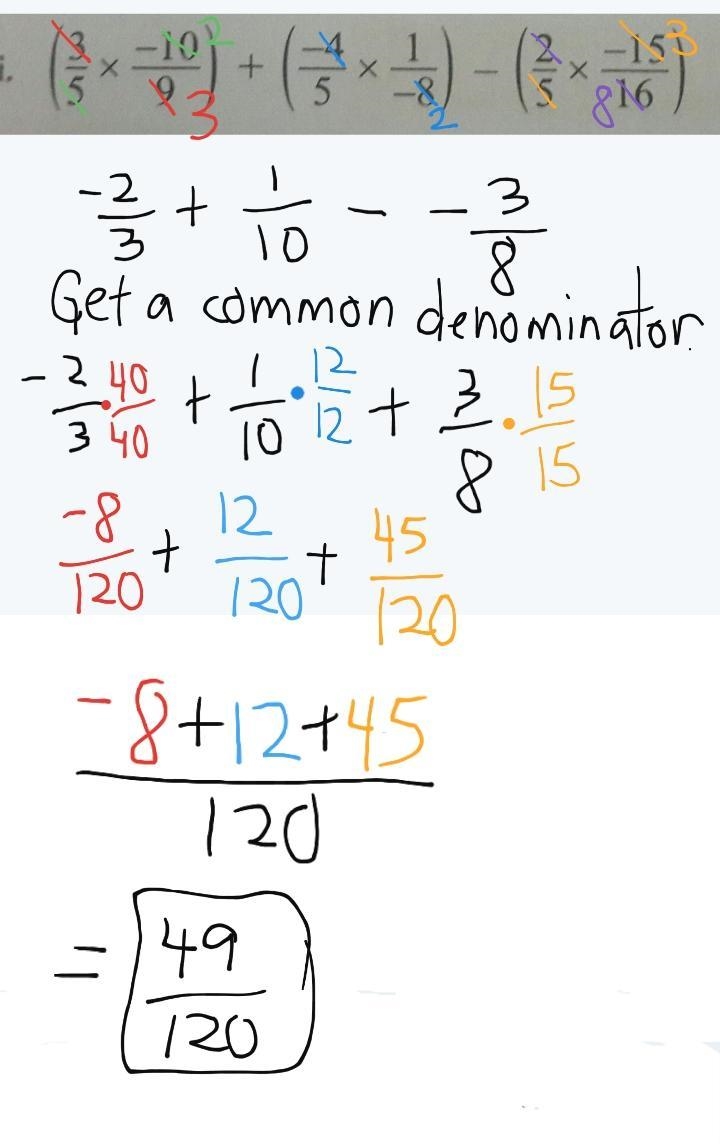 i. (3/5 × -10/9) + (-4/5 × 1/-8) - (2/5 × -15/16)
2 3 2 8 3
-2/3 + 1/10 - - 3/8
Get a common denominator.
-2/3 • 40/40 + 1/10 • 12/12 + 3/8 • 15/15
-8/120 + 12/120 + 45/120
-8+12+45
120
= 49/120